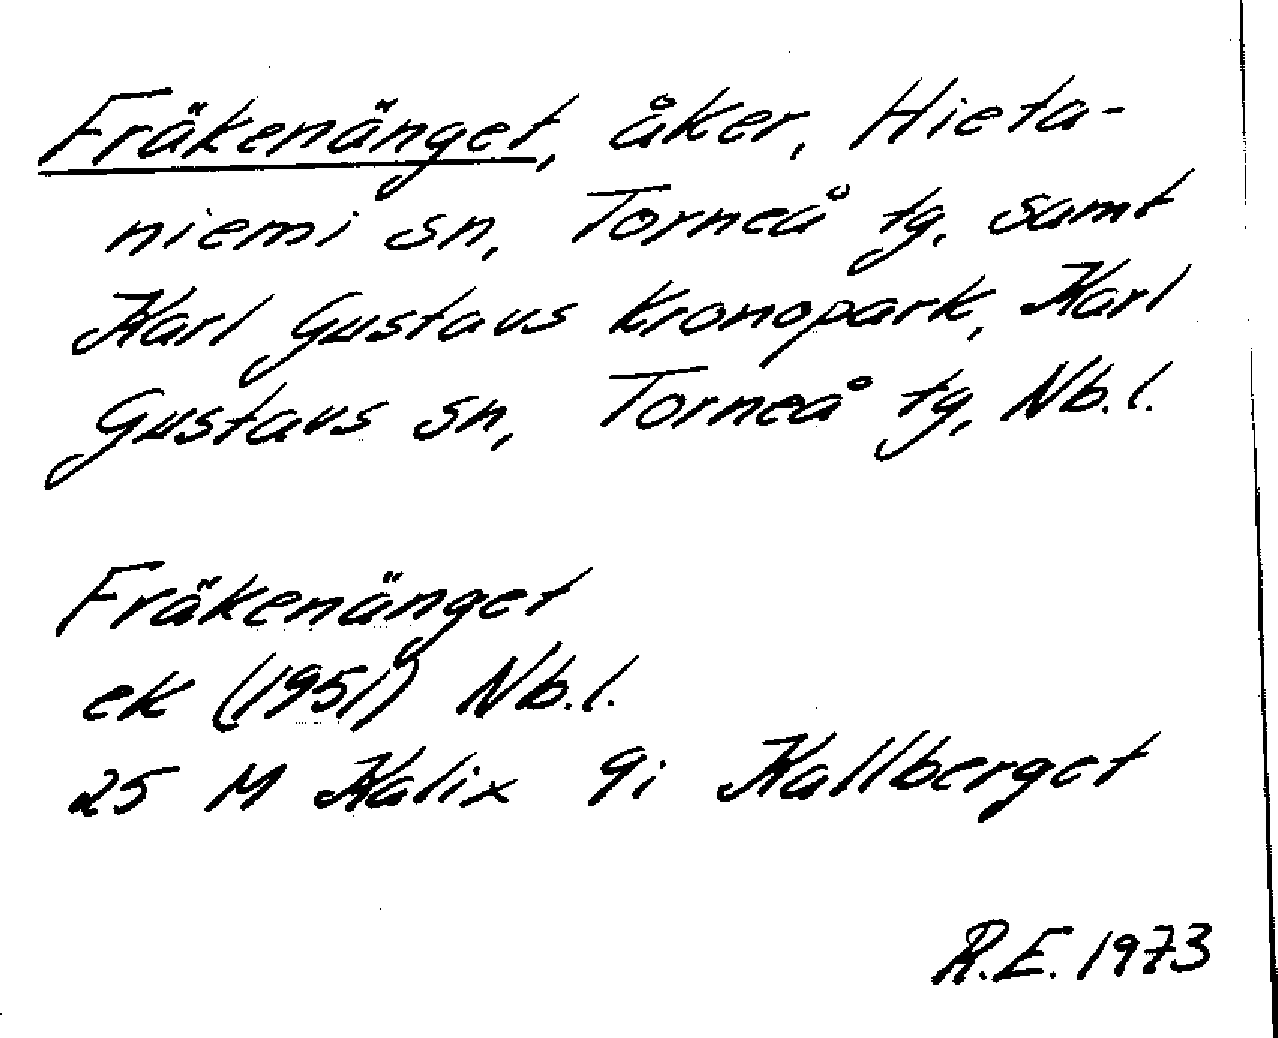 Fräkenänget, åker, Hieta-
niemi sn, Torneå tg, samt
Karl Gustavs kronopark, Karl
Gustavs sn, Torneå tg, Nb.l.
Fräkenänget
ek (1951) Nb.l.
25 M Kalix 9i Kallberget
R.E. 1973